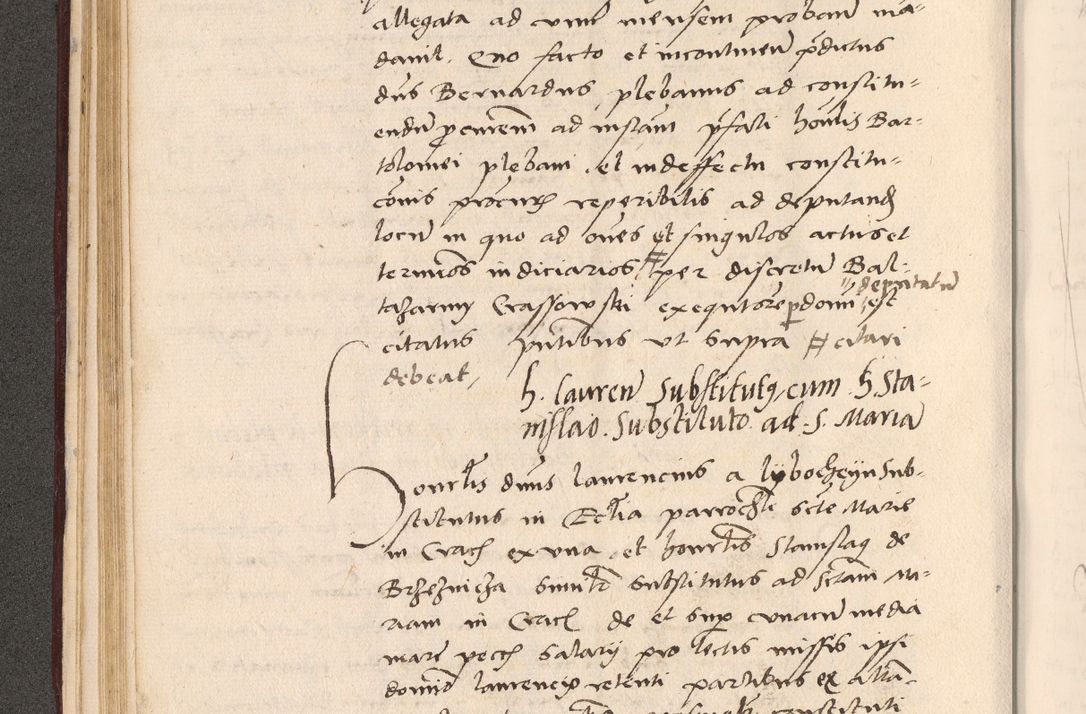 allegata ad unu mensem proband man-
davit. Quo facto et incontinen pdictus
dns Bernardus plebanus ad constitu-
endu pcurem ad instan pfati honlis Bar-
tolomei plebani et in deffectu constitu-
conis procur reperibilis ad deputand
locu in quo ad oes et singulos actus et
terminos iudiciarios # per discretu Bal-
tazarum Crassowski exequtore p domi "deputatu est
citatus pntibus ut supra # citari
debeat
h. Lauren Substitutus cum h. Sta-
nislao Substituto ad S. Maria
Honrlis dnus Laurencius a Lybocheyn Sub-
stitutus in Ecclia parrochli scte Marie
in Crac ex una et honrlis Stanislaus de
Brzeznicza similr substitutus ad sctam Ma-
riam in Crac de et sup una cu media
mare pecc salary pro lectis missis ipsi
domino Laurencio retenti partibus ex alta-
constituti